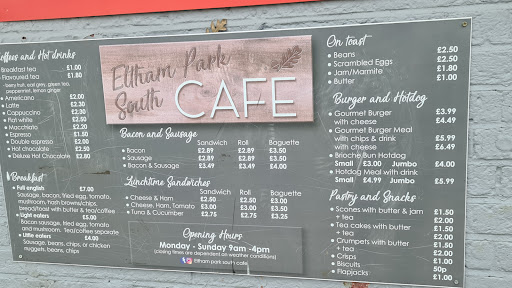 Coffees and Hot drinks
Breakfast tea £1.00
Flavoured tea £1.80
berry fruit, earl grey, green tea,
peppermint, lemon ginger
Americano £2.00
Latte £2.30
Cappuccino £2.30
Flat white £2.50
Macchiato £2.20
Espresso £1.30
Double espresso £2.00
Hot chocolate £2.50
Deluxe Hot Chocolate £2.80
Breakfast
Full english £7.00
Sausage, bacon, fried egg, tomato,
mushroom, hash browns/chips,
bread/toast with butter & tea/coffee
Light eaters £5.00
Bacon sausage, fried egg, tomato
and mushroom. Tea/coffee separate
Little eaters £4.00
Sausage, beans, chips, or chicken
nuggets, beans, chips
Eltham Park
South CAFE
Bacon and Sausage
Sandwich Roll Baguette
Bacon £2.89 £2.89 £3.50
Sausage £2.89 £2.89 £3.50
Bacon & Sausage £3.49 £3.49 £4.00
Lunchtime Sandwiches
Sandwich Roll Baguette
Cheese & Ham £2.50 £2.50 £3.00
Cheese, Ham, Tomato £3.00 £3.00 £3.50
Tuna & Cucumber £2.75 £2.75 £3.25
Opening Hours
Monday - Sunday 9am -4pm
(closing times are dependent on weather conditions)
Eltham park south cafe
On toast
Beans £2.50
Scrambled Eggs £2.50
Jam/Marmite £1.80
Butter £1.00
Burger and Hotdog
Gourmet Burger £3.99
with cheese £4.49
Gourmet Burger Meal
with chips & drink £5.99
with cheese £6.49
Brioche Bun Hotdog
Small £3.00 Jumbo £4.00
Hotdog Meal with drink
Small £4.99 Jumbo £5.99
Pastry and Snacks
Scones with butter & jam £1.50
+ tea £2.00
Tea cakes with butter £1.50
+ tea £2.00
Crumpets with butter £1.50
+ tea £2.00
Crisps £1.00
Biscuits 50p
Flapjacks £1.00